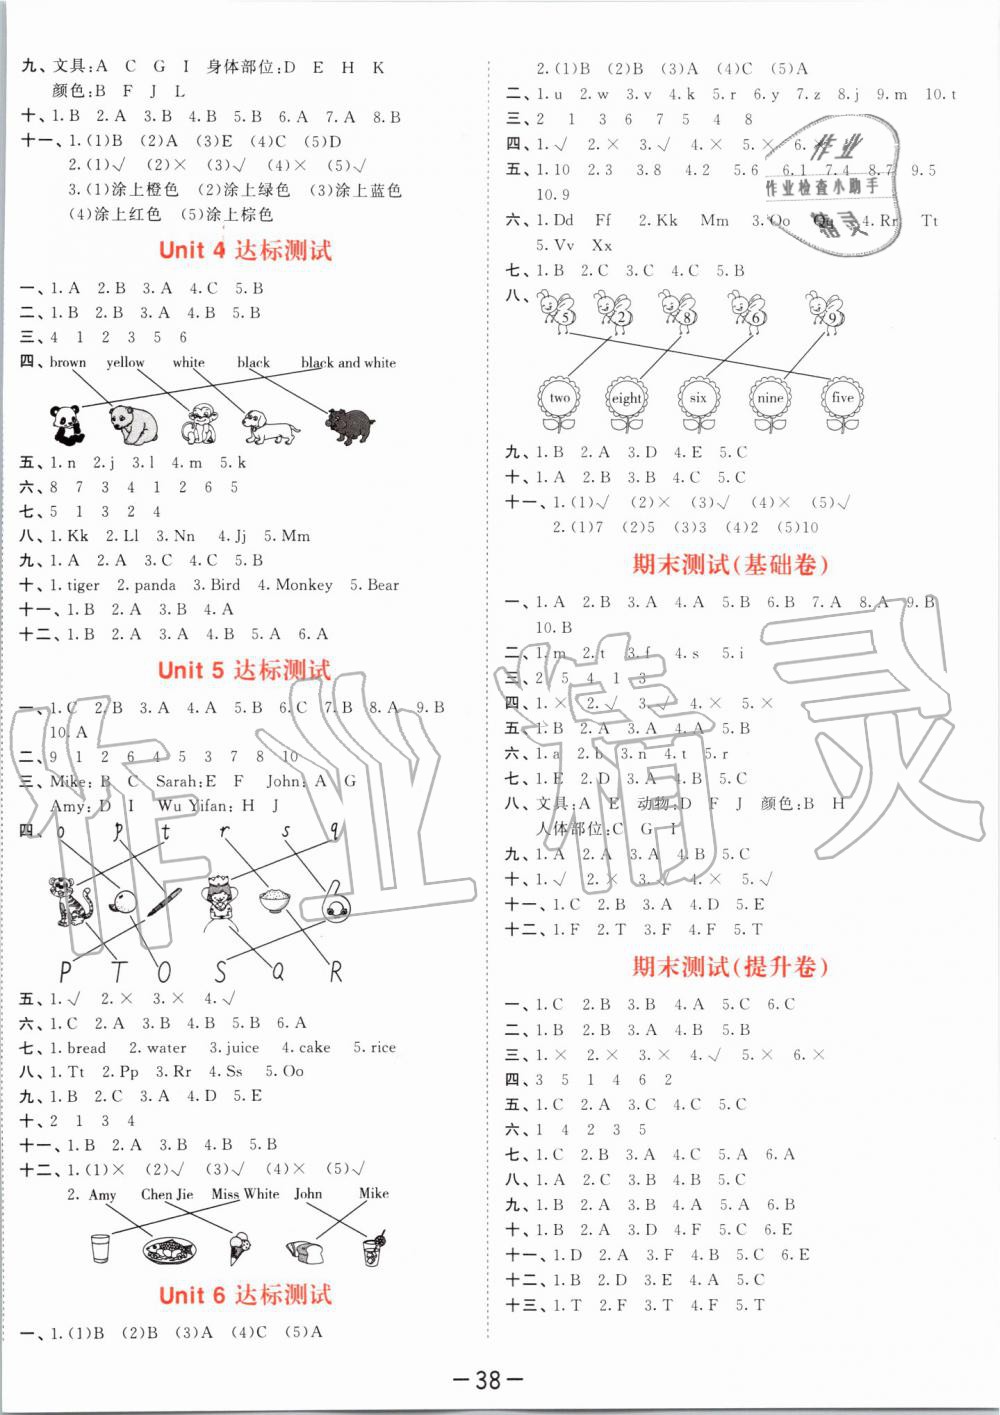 九、文具:A C G I 身体部位:D E H K
颜色:B F J L
十、1.B 2.A 3.B 4.B 5.B 6.A 7.A 8.B
十一、1.(1)B (2)A (3)E (4)C (5)D
2.(1)√ (2)× (3)√ (4)× (5)√
3.(1)涂上橙色 (2)涂上绿色 (3)涂上蓝色
(4)涂上红色 (5)涂上棕色
Unit 4 达标测试
一、1.A 2.B 3.A 4.C 5.B
二、1.B 2.B 3.A 4.B 5.B
三、4 1 2 3 5 6
四、brown yellow white black black and white
五、1.n 2.j 3.l 4.m 5.k
六、8 7 3 4 1 2 6 5
七、5 1 3 2 4
八、1.Kk 2.Ll 3.Nn 4.Jj 5.Mm
九、1.A 2.A 3.C 4.C 5.B
十、1.tiger 2.panda 3.Bird 4.Monkey 5.Bear
十一、1.B 2.A 3.B 4.A
十二、1.B 2.A 3.A 4.B 5.A 6.A
Unit 5 达标测试
一、1.C 2.B 3.A 4.A 5.B 6.C 7.B 8.A 9.B
10.A
二、9 1 2 6 4 5 3 7 8 10
三、Mike:B C Sarah:E F John:A G
Amy:D I Wu Yifan:H J
四、o p t r s q
P T O S Q R
五、1.√ 2.× 3.× 4.√
六、1.C 2.A 3.B 4.B 5.B 6.A
七、1.bread 2.water 3.juice 4.cake 5.rice
八、1.Tt 2.Pp 3.Rr 4.Ss 5.Oo
九、1.B 2.C 3.A 4.D 5.E
十、2 1 3 4
十一、1.B 2.A 3.B 4.B 5.B
十二、1.(1)× (2)√ (3)√ (4)× (5)√
2. Amy Chen Jie Miss White John Mike
Unit 6 达标测试
一、1.(1)B (2)B (3)A (4)C (5)A
2.(1)B (2)B (3)A (4)C (5)A
二、1.u 2.w 3.v 4.k 5.r 6.y 7.z 8.j 9.m 10.t
三、2 1 3 6 7 5 4 8
四、1.√ 2.× 3.√ 4.× 5.× 6.
五、1.10 2.3 3.8 4.2 5.6 6.1 7.4 8.7 9.5
10.9
六、1.Dd Ff 2.Kk Mm 3.Oo Qq 4.Rr Tt
5.Vv Xx
七、1.B 2.C 3.C 4.C 5.B
八、5 2 8 6 9
two eight six nine five
九、1.B 2.A 3.D 4.E 5.C
十、1.A 2.B 3.B 4.C 5.C
十一、1.(1)√ (2)× (3)√ (4)× (5)√
2.(1)7 (2)5 (3)3 (4)2 (5)10
期末测试(基础卷)
一、1.A 2.B 3.A 4.A 5.B 6.B 7.A 8.A 9.B
10.B
二、1.m 2.t 3.f 4.s 5.i
三、2 5 4 1 3
四、1.× 2.√ 3.√ 4.× 5.×
五、1.B 2.A 3.A 4.A 5.B
六、1.a 2.b 3.n 4.t 5.r
七、1.E 2.D 3.A 4.B 5.C
八、文具:A E 动物:D F J 颜色:B H
人体部位:C G I
九、1.A 2.A 3.A 4.B 5.C
十、1.√ 2.× 3.√ 4.× 5.√
十一、1.C 2.B 3.A 4.D 5.E
十二、1.F 2.T 3.F 4.F 5.T
期末测试(提升卷)
一、1.C 2.B 3.B 4.A 5.C 6.C
二、1.B 2.B 3.A 4.B 5.B
三、1.× 2.× 3.× 4.√ 5.× 6.×
四、3 5 1 4 6 2
五、1.C 2.A 3.C 4.C 5.C
六、1 4 2 3 5
七、1.C 2.B 3.B 4.C 5.A 6.A
八、1.A 2.C 3.B 4.B 5.C
九、1.B 2.A 3.B 4.A 5.A 6.B
十、1.B 2.A 3.D 4.F 5.C 6.E
十一、1.D 2.A 3.F 4.B 5.C 6.E
十二、1.B 2.D 3.E 4.A 5.C
十三、1.T 2.F 3.T 4.F 5.T
作业
作业检查小助手
精灵
作业精灵
—38—